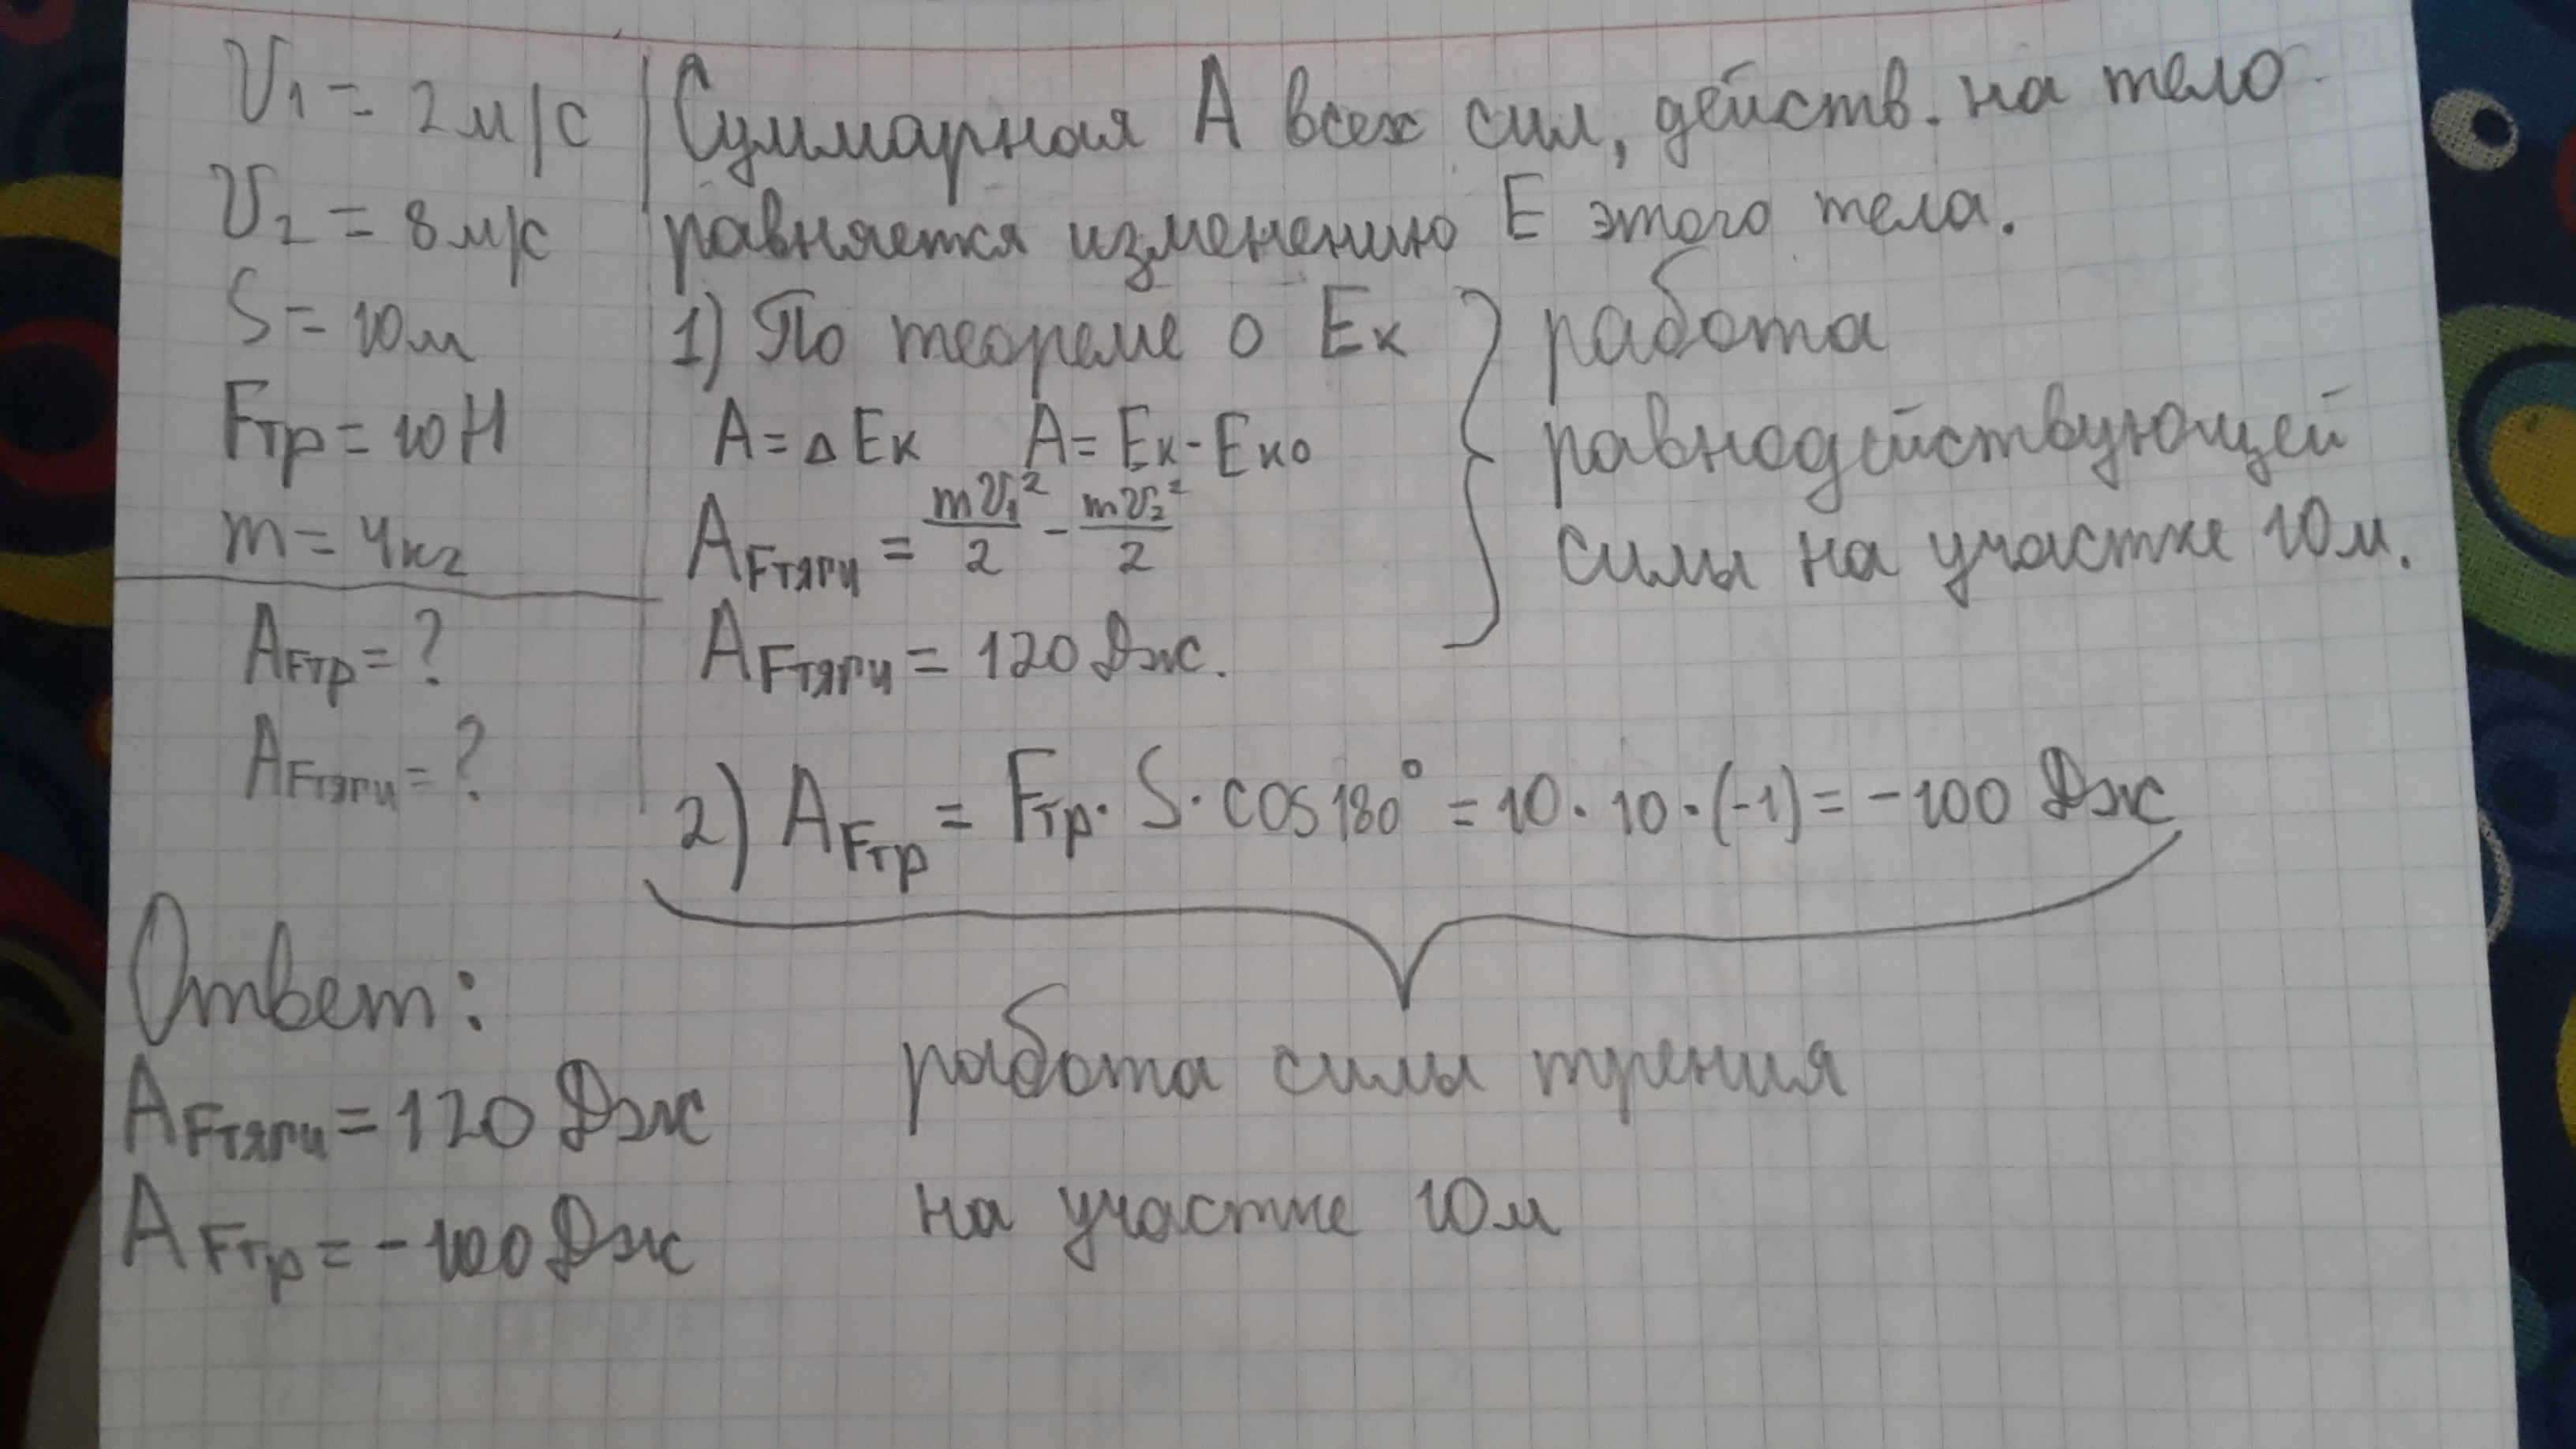 V₁ = 2 м/с
V₂ = 8 м/с
S = 10 м
Fтр = 10 Н
m = 4 кг
AFтр = ?
AFтяги = ?
Суммарная A всех сил, действ. на тело
равняется изменению E этого тела.
1) По теореме о Eк
A = ΔEк A = Eк - Eк0
AFтяги = mV₁²/2 - mV₂²/2
AFтяги = 120 Дж.
работа
равнодействующей
силы на участке 10 м.
2) AFтр = Fтр · S · cos 180° = 10 · 10 · (-1) = -100 Дж
работа силы трения
на участке 10 м
Ответ:
AFтяги = 120 Дж
AFтр = -100 Дж